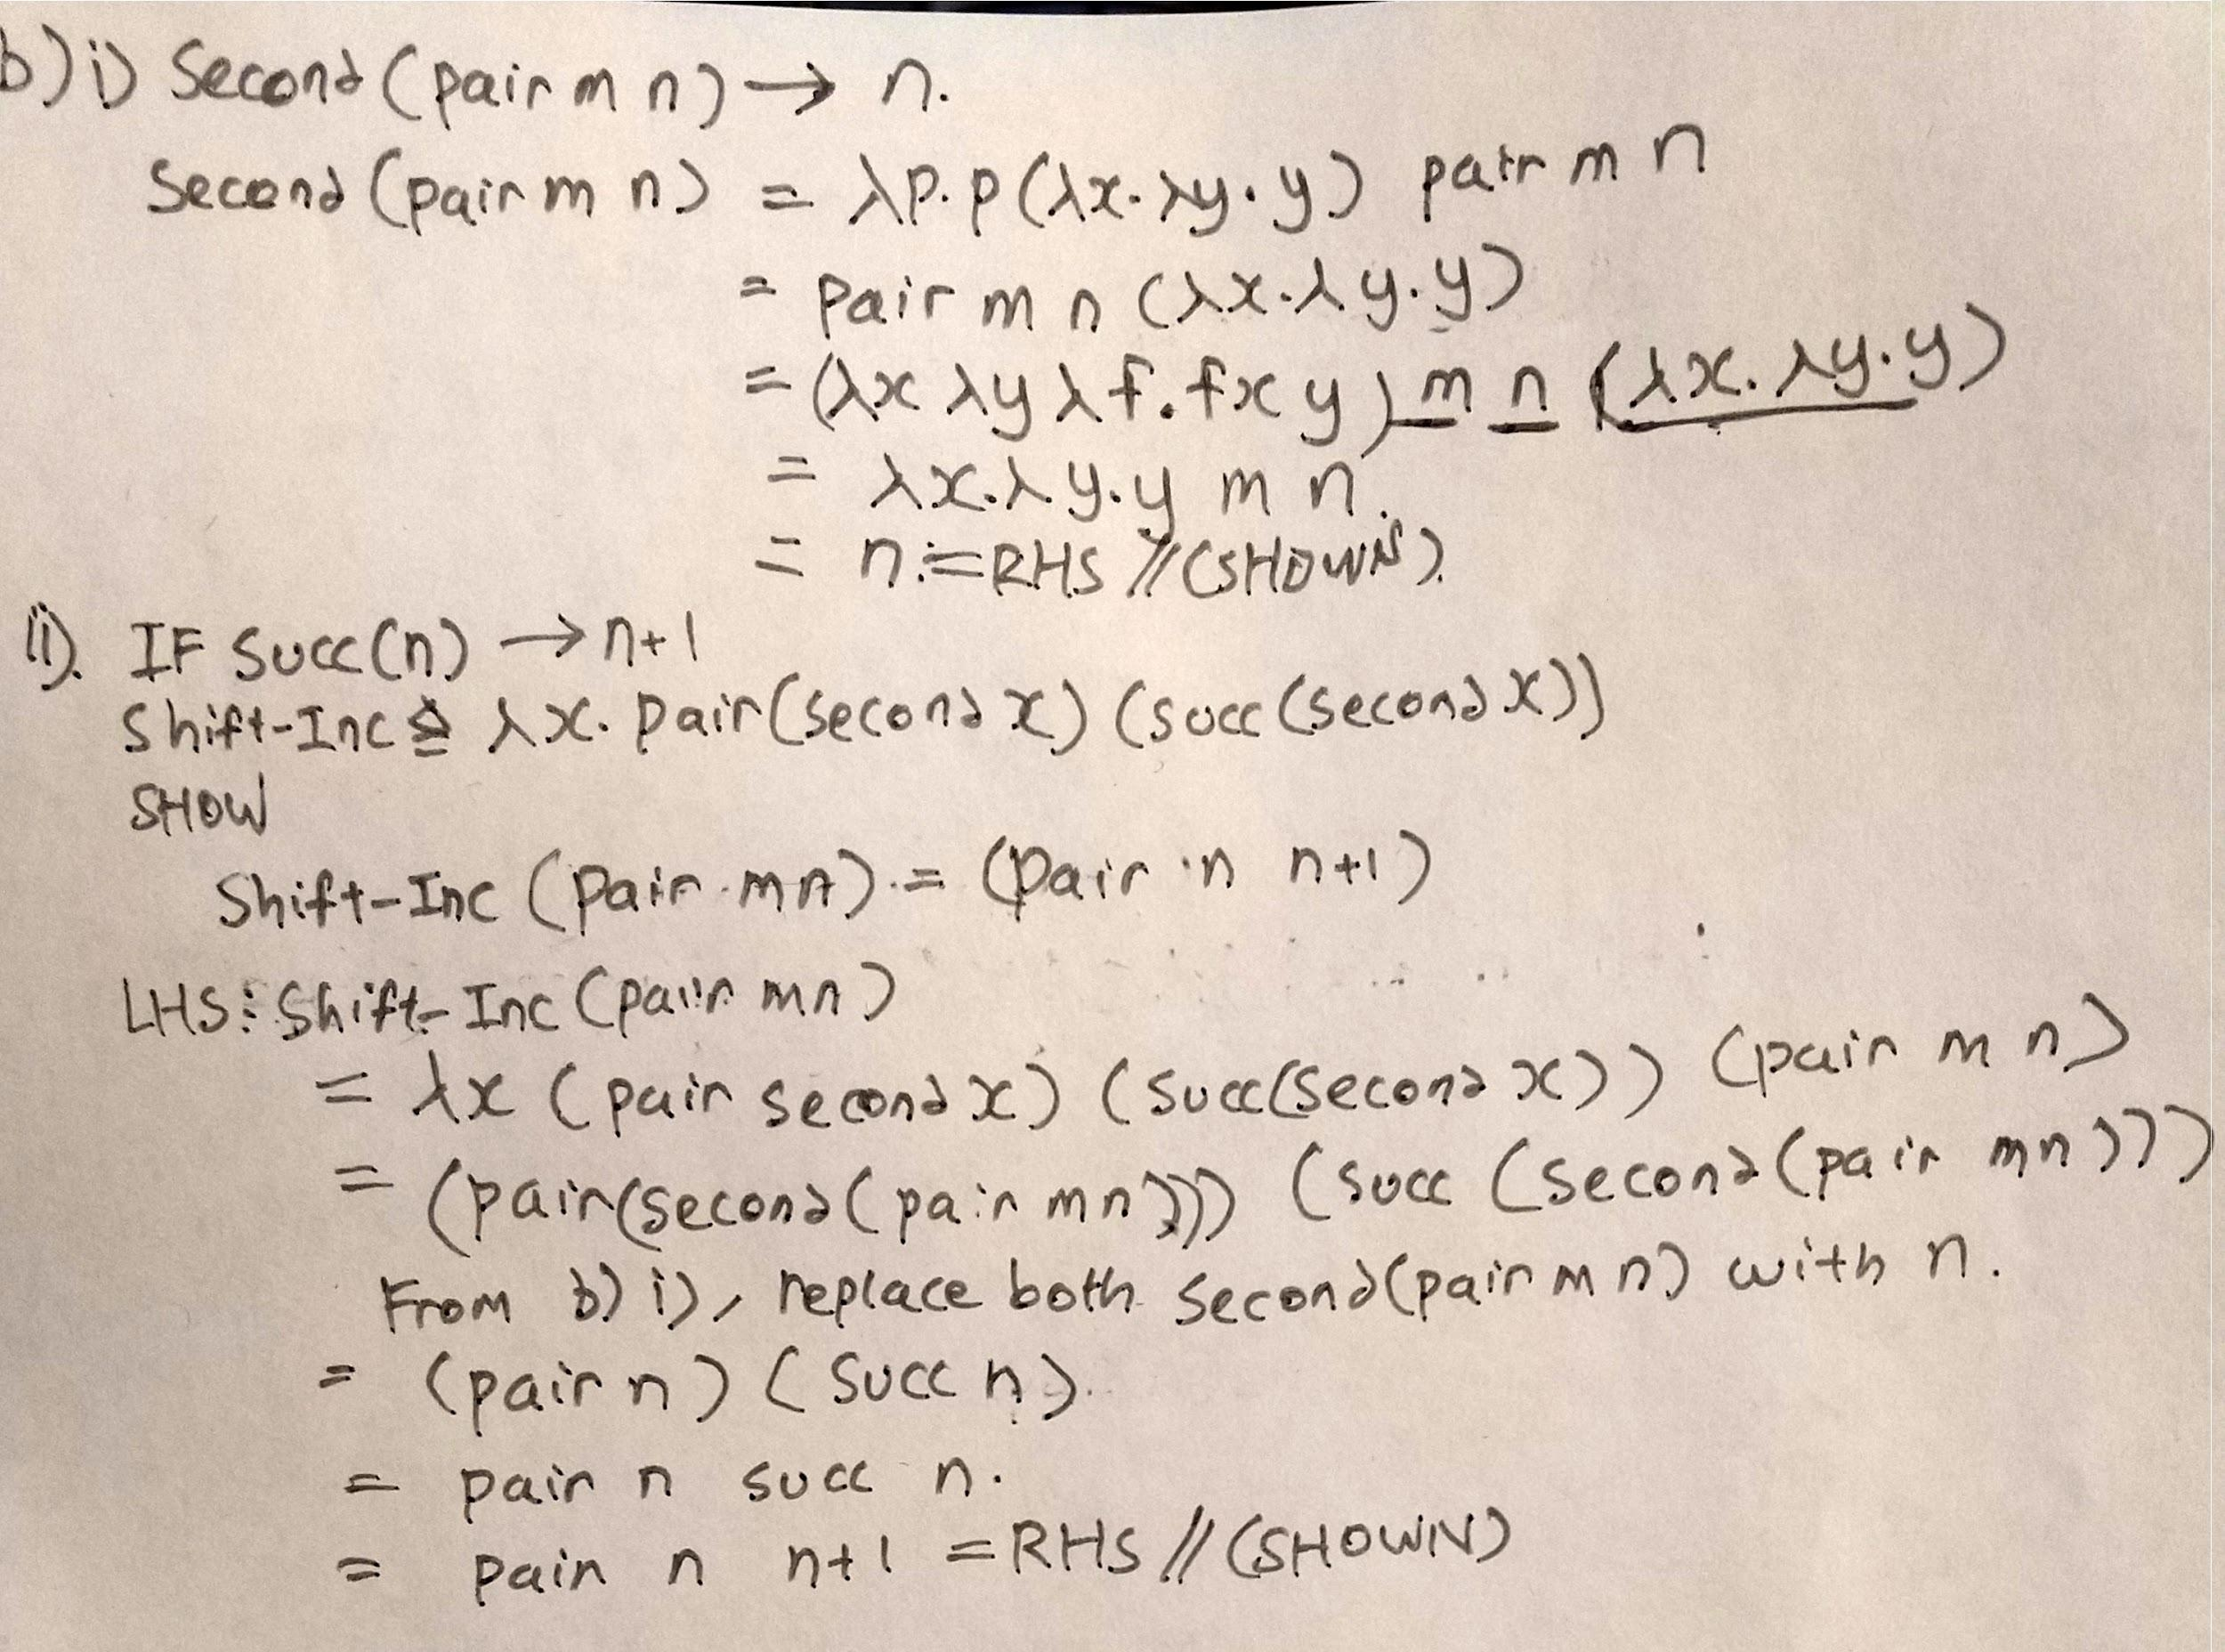 b) i) Second (pair m n) → n.
Second (pair m n) = λp.p (λx.λy.y) pair m n
= pair m n (λx.λy.y)
= (λx λy λf.fxy) m n (λx.λy.y)
= λx.λy.y m n.
= n.=RHS // (SHOWN).
ii). IF succ(n) → n+1
Shift-Inc ≙ λx. pair(second x) (succ (second x))
SHOW
Shift-Inc (pair mn) = (pair n n+1)
LHS: Shift-Inc (pair mn)
= λx (pair second x) (succ(second x)) (pair m n)
= (pair(second (pair mn))) (succ (second (pair mn)))
From b) i), replace both second(pair m n) with n.
= (pair n) (succ n).
= pair n succ n.
= pair n n+1 =RHS // (SHOWN)